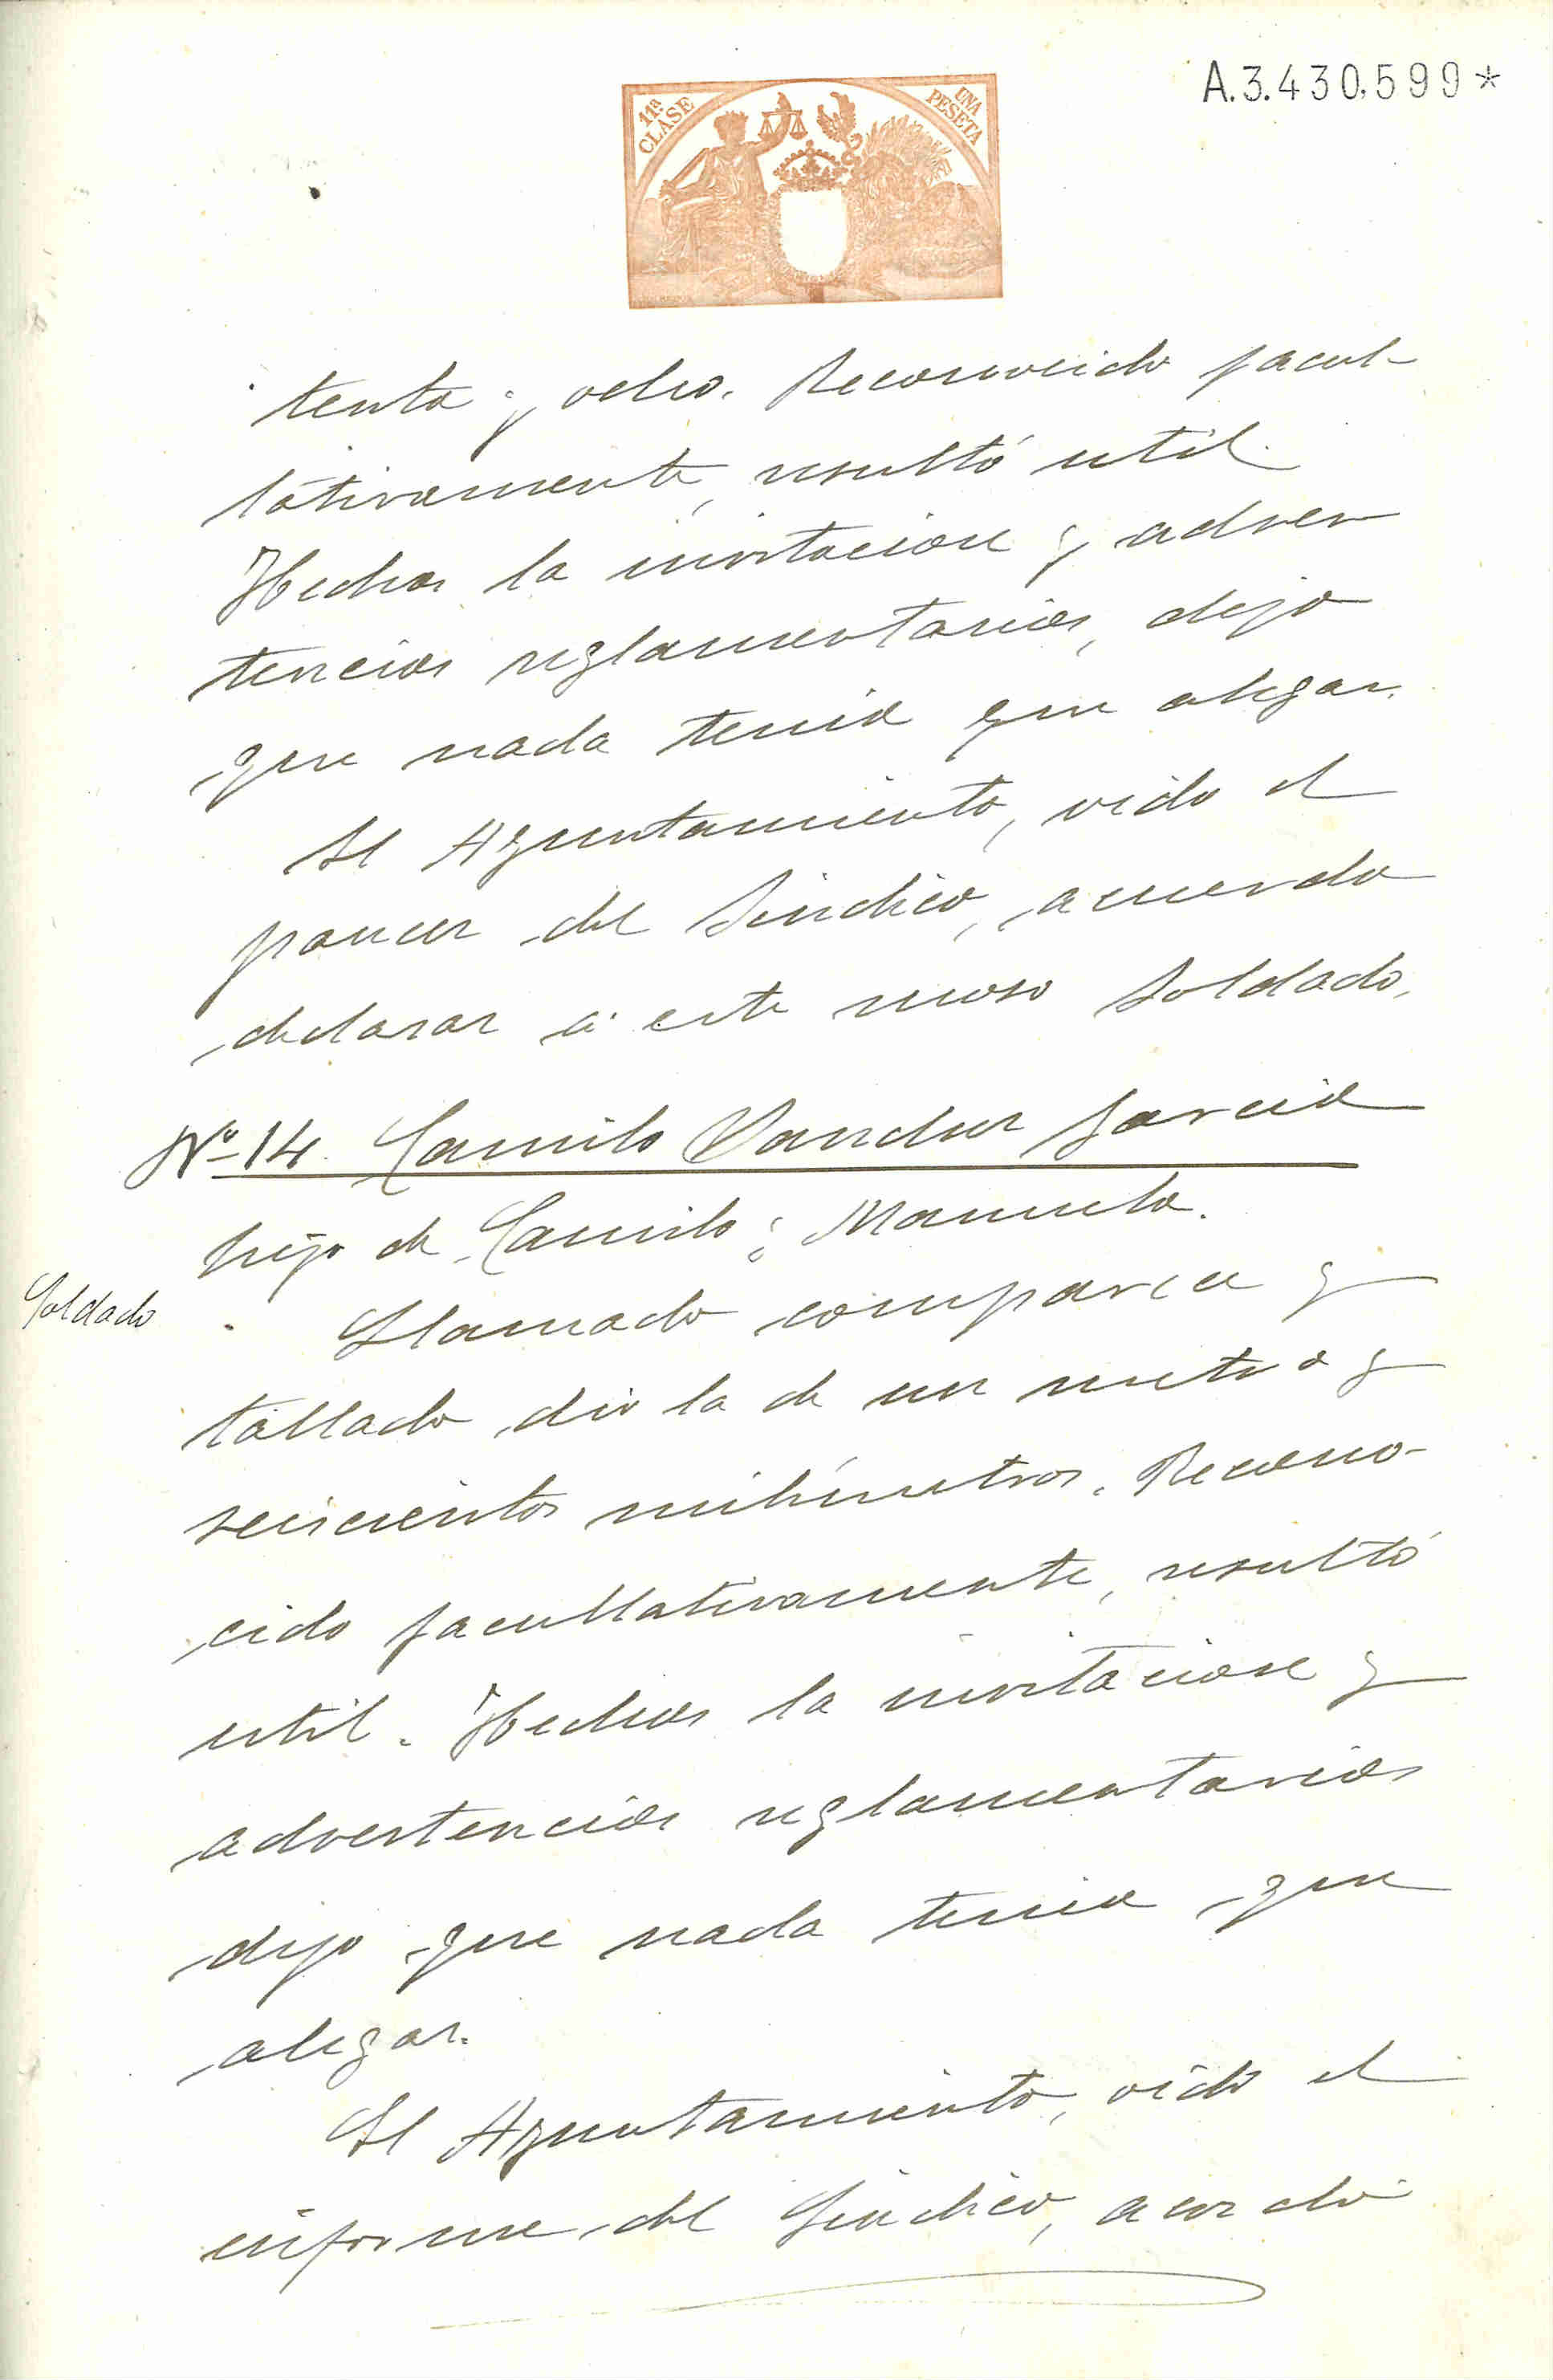 A.3.430.599*
11ª CLASE
UNA PESETA
tenta y ocho. Reconocido facul-
tativamente, resultó util.
Hechas la invitacion y adver
tencias reglamentarias, dijo
que nada tenia que alegar.
El Ayuntamiento, oido el
parecer del Sindico, acuerda
declarar á este moso Soldado.
Nº 14. Camilo Sanchez Garcia
hijo de Camilo y Manuela.
Soldado
Llamado comparece y
tallado dio la de un metro y
seiscientos milímetros. Recono-
cido facultativamente, resultó
util. Hechas la invitacion y
advertencias reglamentarias
dijo que nada tenia que
alegar.
El Ayuntamiento, oido el
informe del Sindico, acordó